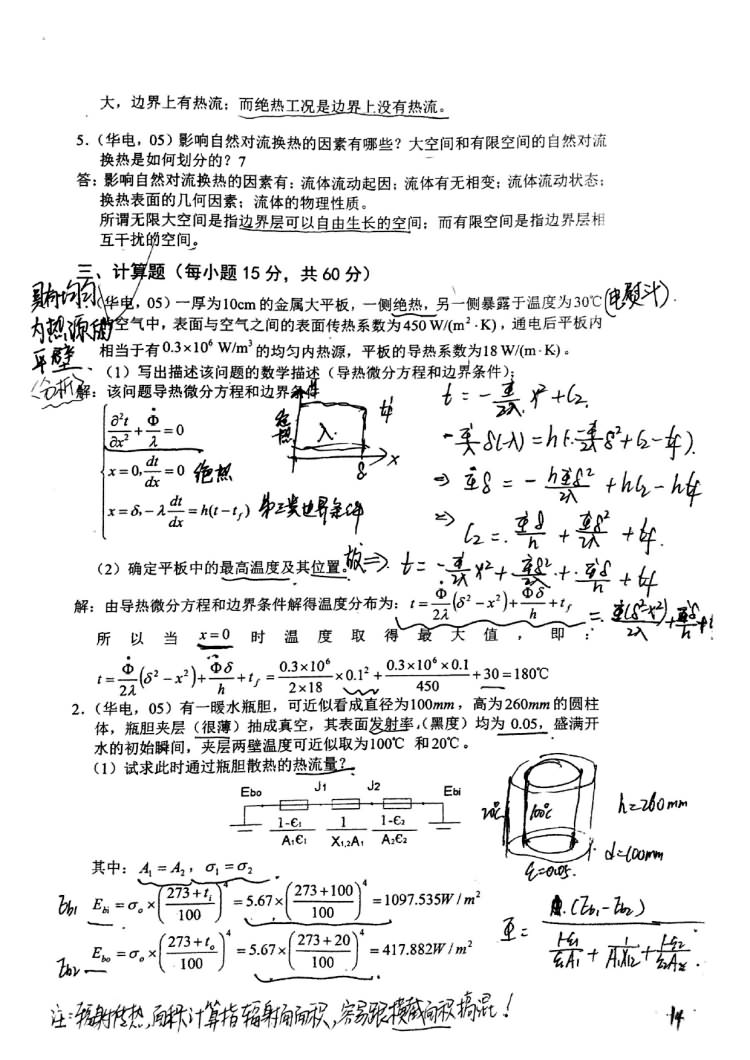 大，边界上有热流；而绝热工况是边界上没有热流。
5.（华电，05）影响自然对流换热的因素有哪些？大空间和有限空间的自然对流
换热是如何划分的？7
答：影响自然对流换热的因素有：流体流动起因；流体有无相变；流体流动状态；
换热表面的几何因素；流体的物理性质。
所谓无限大空间是指边界层可以自由生长的空间；而有限空间是指边界层相
互干扰的空间。
三、计算题（每小题 15 分，共 60 分）
（华电，05）一厚为10cm 的金属大平板，一侧绝热，另一侧暴露于温度为30℃（电熨斗）.
的空气中，表面与空气之间的表面传热系数为450 W/(m²·K)，通电后平板内
相当于有 0.3×10⁶ W/m³ 的均匀内热源，平板的导热系数为18 W/(m·K)。
具有均匀
内热源的
平壁
（分析）
（1）写出描述该问题的数学描述（导热微分方程和边界条件）；
解：该问题导热微分方程和边界条件
∂²t/∂x² + Φ̇/λ = 0
x=0, dt/dx = 0 绝热
x=δ, -λ dt/dx = h(t-t_f) 第三类边界条件
绝热
λ.
t_f
δ
x
t = -Φ̇/2λ x² + C₂.
-Φ̇/λ δ(-λ) = h(-Φ̇/2λ δ² + C₂ - t_f).
⇒ Φ̇δ = -hΦ̇δ²/2λ + hC₂ - ht_f
⇒ C₂ = Φ̇δ/h + Φ̇δ²/2λ + t_f.
（2）确定平板中的最高温度及其位置。
⇒ t = -Φ̇/2λ x² + Φ̇δ²/2λ + Φ̇δ/h + t_f
解：由导热微分方程和边界条件解得温度分布为：t = Φ̇/2λ (δ²-x²) + Φ̇δ/h + t_f
= Φ̇(δ²-x²)/2λ + Φ̇δ/h + t_f
所以当 x=0 时温度取得最大值，即：
t = Φ̇/2λ (δ²-x²) + Φ̇δ/h + t_f = 0.3×10⁶/2×18 ×0.1² + 0.3×10⁶×0.1/450 + 30 = 180℃
2.（华电，05）有一暖水瓶胆，可近似看成直径为100mm，高为260mm 的圆柱
体，瓶胆夹层（很薄）抽成真空，其表面发射率（黑度）均为 0.05，盛满开
水的初始瞬间，夹层两壁温度可近似取为100℃ 和20℃。
（1）试求此时通过瓶胆散热的热流量？
Ebo J1 J2 Ebi
1-Є₁/A₁Є₁ 1/X₁,₂A₁ 1-Є₂/A₂Є₂
20℃
100℃
h=260mm
d=100mm
ε=0.05.
其中：A₁ = A₂，σ₁ = σ₂
Eb₁ E_bi = σ_o × (273+t_i/100)⁴ = 5.67×(273+100/100)⁴ = 1097.535W/m²
Eb₂ E_bo = σ_o × (273+t_o/100)⁴ = 5.67×(273+20/100)⁴ = 417.882W/m²
Φ = (Eb₁-Eb₂) / (1-ε₁/ε₁A₁ + 1/A₁X₁₂ + 1-ε₂/ε₂A₂).
注：辐射传热，面积计算指辐射面面积，容易跟横截面积搞混！
14